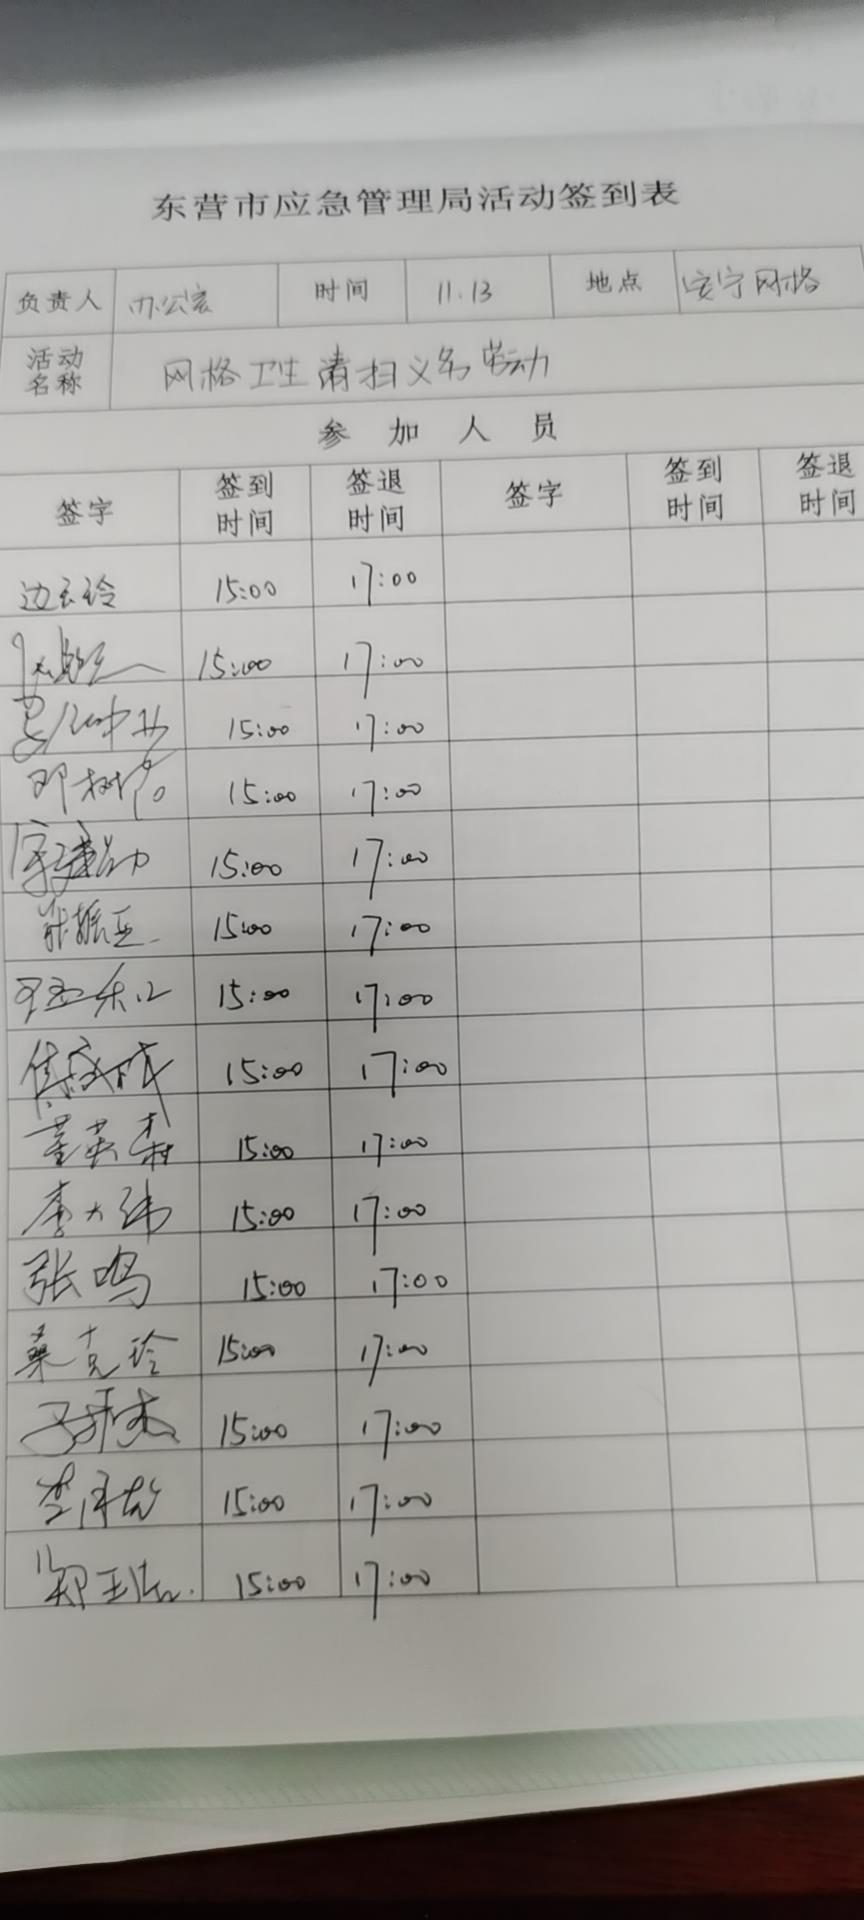 东营市应急管理局活动签到表
负责人 办公室 时间 11.13 地点 安宁网格
活动名称 网格卫生清扫义务劳动
参加人员
签字 签到时间 签退时间 签字 签到时间 签退时间
边云玲 15:00 17:00
15:00 17:00
15:00 17:00
邓树 15:00 17:00
15:00 17:00
张振亚 15:00 17:00
15:00 17:00
15:00 17:00
董英森 15:00 17:00
李大伟 15:00 17:00
张鸣 15:00 17:00
桑克玲 15:00 17:00
15:00 17:00
李 15:00 17:00
郑 15:00 17:00